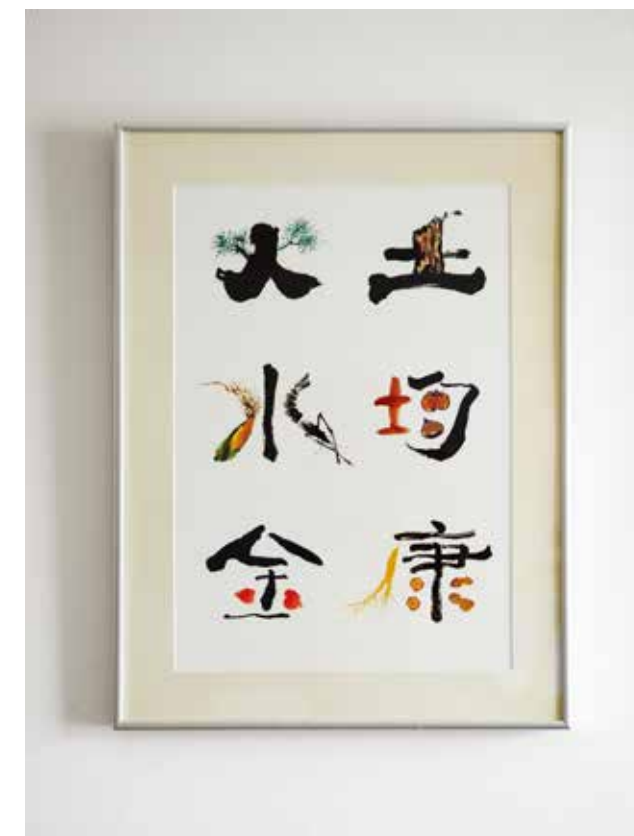 火土
水均
金康